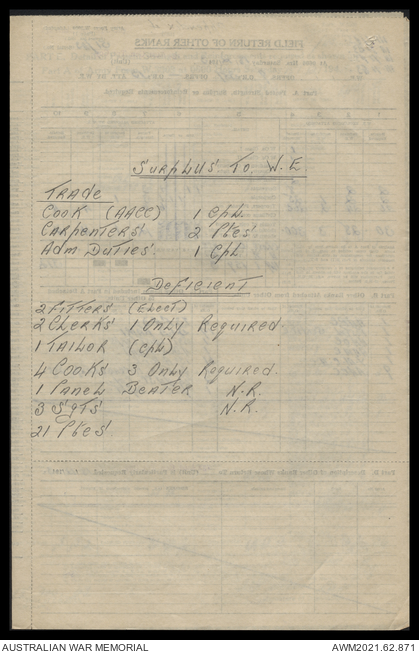 SURPLUS TO W.E.
TRADE
COOK (AACC) 1 CPL.
CARPENTERS 2 Ptes
ADM DUTIES 1 CPL
DEFICIENT
2 FITTERS (ELECT)
2 CLERKS 1 ONLY REQUIRED.
1 TAILOR (CPL)
4 COOKS 3 ONLY REQUIRED.
1 PANEL BEATER N.R.
3 SGTS N.R.
21 Ptes
AUSTRALIAN WAR MEMORIAL
AWM2021.62.871